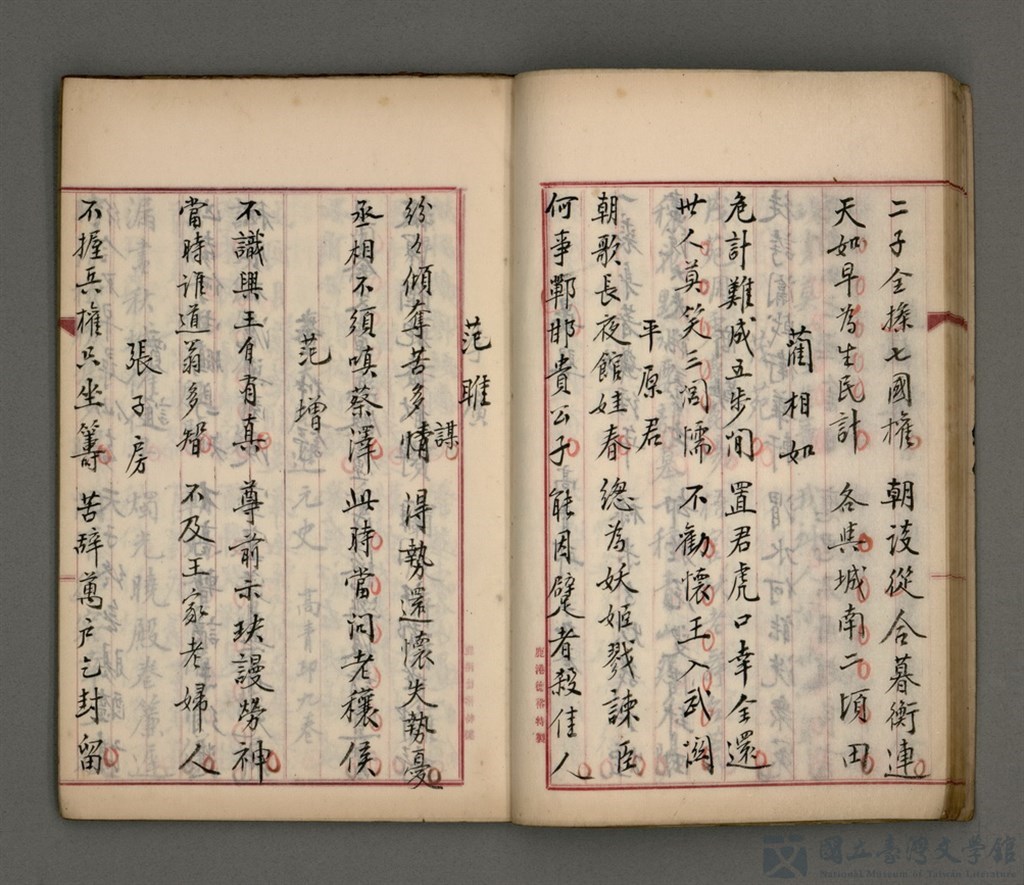 二子全操七國權　朝談從合暮衡連
天如早為生民計　各與城南二頃田
藺相如
危計難成五步間　置君虎口幸全還
世人莫笑三閭懦　不勸懷王入武關
平原君
朝歌長夜館娃春　總為妖姬戮諫臣
何事鄲邯貴公子　能因躄者殺佳人
范雎
紛々傾奪苦多情　得勢還懷失勢憂
謀
丞相不須嗔蔡澤　此時當问老穰侯
范增
不識興王自有真　尊前示玦謾勞神
當時誰道翁多智　不及王家老婦人
張子房
不握兵權只坐籌　苦辭萬户乞封留
鹿港信裕特製
國立臺灣文學館
National Museum of Taiwan Literature